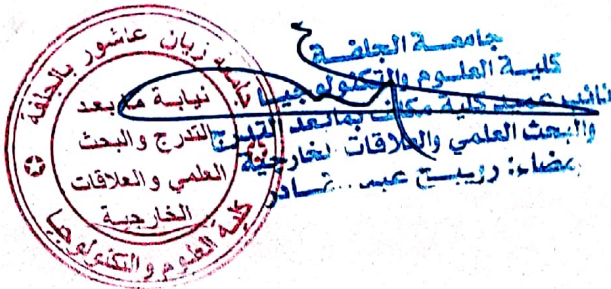 جامعة الجلفة
كلية العلوم والتكنولوجيا
نائب عميد كلية مكلف بمابعد التدرج
والبحث العلمي والعلاقات الخارجية
إمضاء: رويبح عبد القادر
جامعة زيان عاشور بالجلفة
نيابة ما بعد
التدرج والبحث
العلمي و العلاقات
الخارجية
كلية العلوم والتكنولوجيا